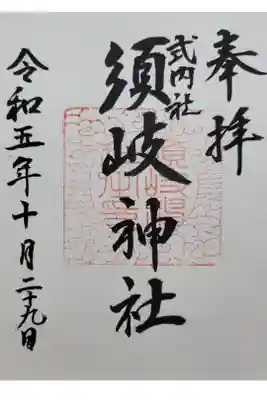 奉拝
式内社
須岐神社
令和五年十月二十九日